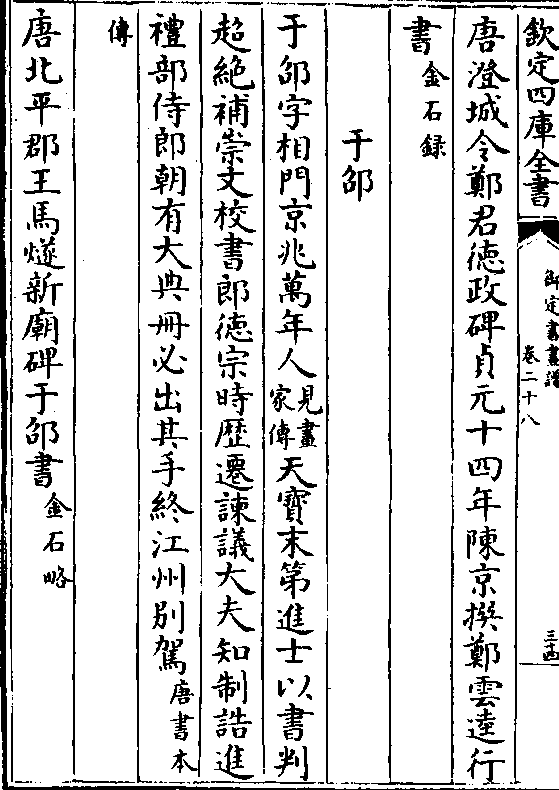 欽定四庫全書
御定書畫譜
卷二十八
三十四
唐澄城令鄭君徳政碑貞元十四年陳京撰鄭雲逵行
書金石録
于邵
于邵字相門京兆萬年人見畫家傳天寳末第進士以書判
超絶補崇文校書郎徳宗時歴遷諫議大夫知制誥進
禮部侍郎朝有大典冊必出其手終江州别駕唐書本
傳
唐北平郡王馬燧新廟碑于邵書金石略